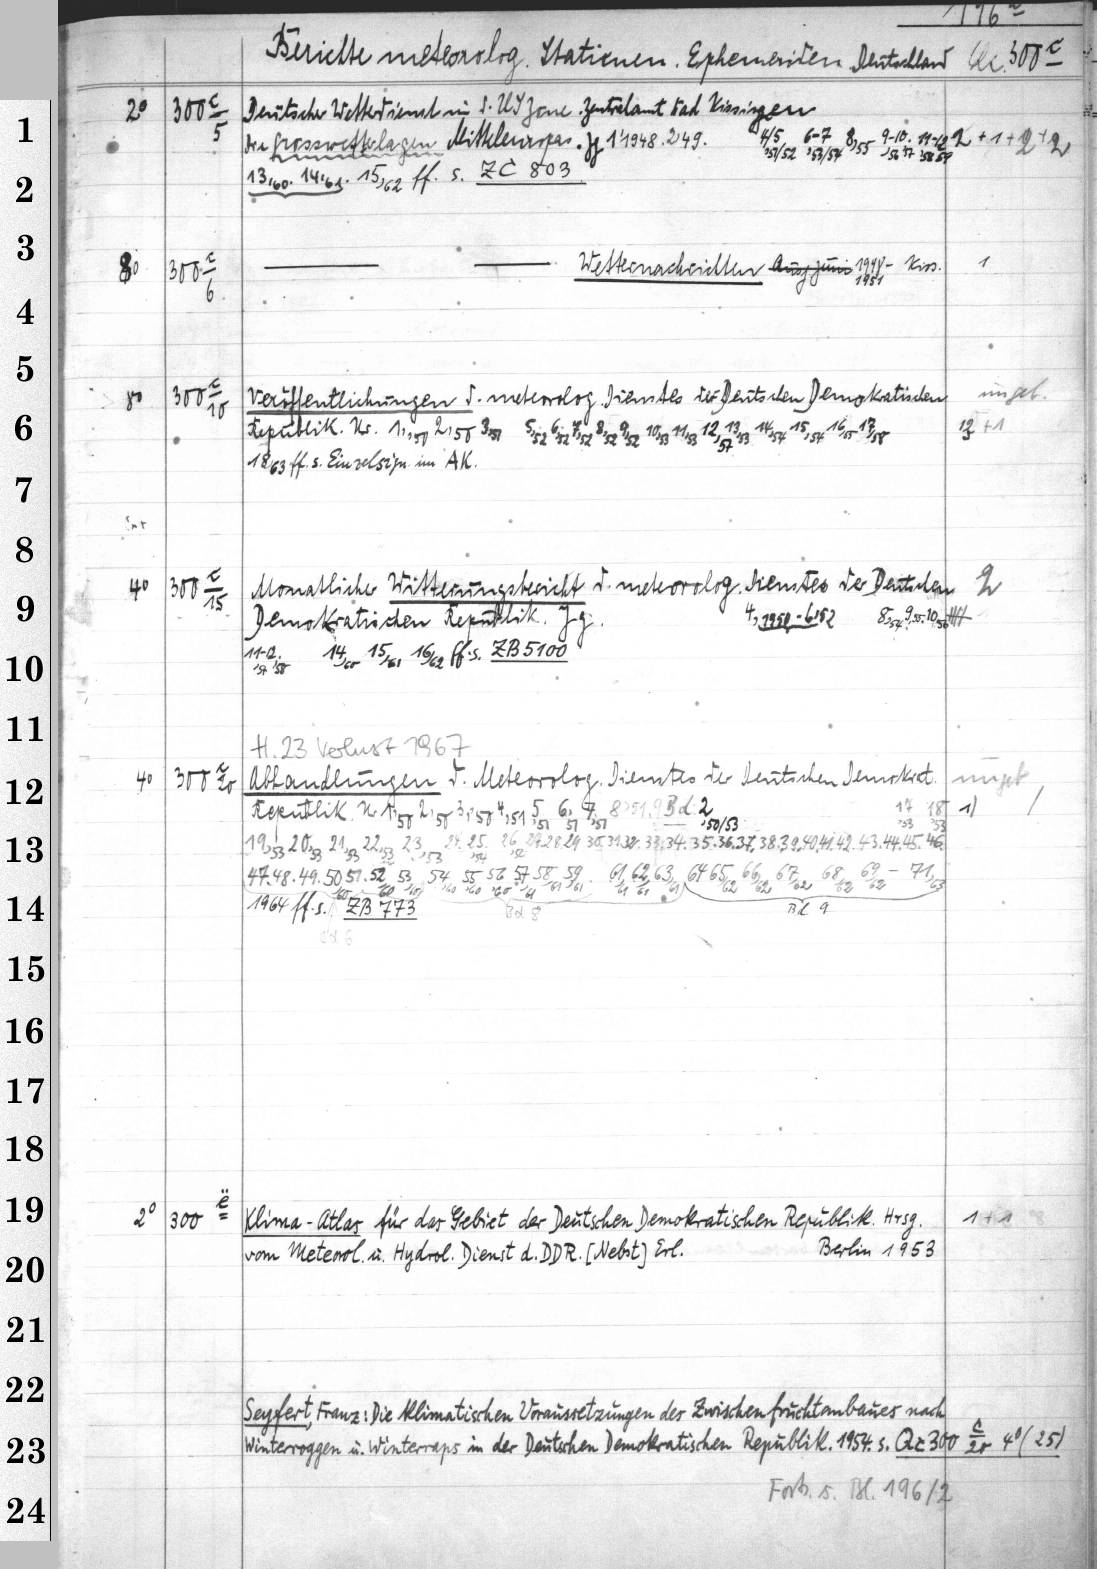 196
Berichte meteorolog. Stationen. Ephemeriden Deutschland Qc. 300 c
1 2° 300 c/5 Deutscher Wetterdienst in d. US Zone. Zentralamt Bad Kissingen
Die Grosswetterlagen Mitteleuropas. Jg 1 1948. 2,49. 4/5,51/52 6-7,53/54 8,55 9-10,56 57 11-12,58 59 2 + 1 + 2 + 2
2 13,60. 14,61. 15,62 ff. s. ZC 803
3 8° 300 c/6 — — Wetternachrichten 1948-1951 Kiss. 1
4
5
8° 300 c/10 Veröffentlichungen d. meteorolog. Dienstes der Deutschen Demokratischen ungeb.
6 Republik. Nr. 1,50 2,50 3,51 5,52 6,52 7,52 8,52 9,52 10,53 11,53 12,57 13,53 14,54 15,54 16,55 17,58 12 + 1
18,63 ff. s. Einzelsign. im AK.
7
8
4° 300 c/15 Monatlicher Witterungsbericht d. meteorolog. Dienstes der Deutschen 2
9 Demokratischen Republik. Jg. 4,1950 - 6,52 8,54 9,55 10,56
10 11-12,57 58 14,60 15,61 16,62 ff. s. ZB 5100
11
H. 23 Verlust 1967
12 4° 300 c/20 Abhandlungen d. Meteorolog. Dienstes der Deutschen Demokrat. ungeb
Republik. Nr 1,50 2,50 3,50 4,51 5,51 6,51 7,51 8,51 9 Bd. 2,50/53 17,53 18,53 1) /
13 19,53 20,53 21,53 22,53 23,53 24. 25,54 26. 27. 28 29 30. 31. 32. 33. 34. 35. 36. 37. 38. 39. 40. 41. 42. 43. 44. 45. 46.
47. 48. 49. 50,60 51. 52,60 53,60 54,60 55,60 56,60 57,61 58,61 59,61 61,61 62,61 63,61 64 65,62 66,62 67,62 68,62 69,62 - 71,63
14 1964 ff. s. ZB 773 Bd 8 Bd 9
Bd 6
15
16
17
18
19 2° 300 ë Klima-Atlas für das Gebiet der Deutschen Demokratischen Republik. Hrsg. 1 + 1
vom Meteorol. u. Hydrol. Dienst d. DDR. [Nebst] Erl. Berlin 1953
20
21
22
Seyfert, Franz: Die klimatischen Voraussetzungen des Zwischenfruchtanbaues nach
23 Winterroggen u. Winterraps in der Deutschen Demokratischen Republik. 1954. s. Qc 300 c/20 . 4° (25)
Forts. s. Bl. 196/2
24